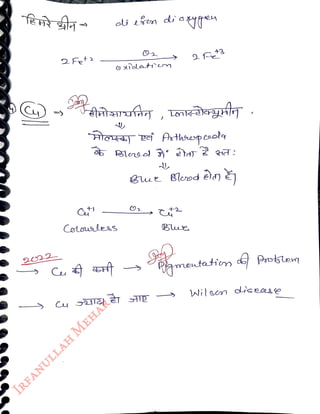 हिमरे थ्रीन → di iron dioxygen
2 Fe+2 O2 oxidation → 2 Fe+3
Cu → Imp हीमोसायनिन , प्लास्टोक्युमीन .
⇓
मोलस्का एवं Arthropoda
के Blood में होता है अत:
⇓
Blue Blood होता है|
Cu+1 O2 → Cu+2
Colourless Blue
2022
→ Cu की कमी → Imp Pigmentation की Problem
→ Cu ज्यादा हो जाए → Wilson disease
IRFANULLAH MEHAR